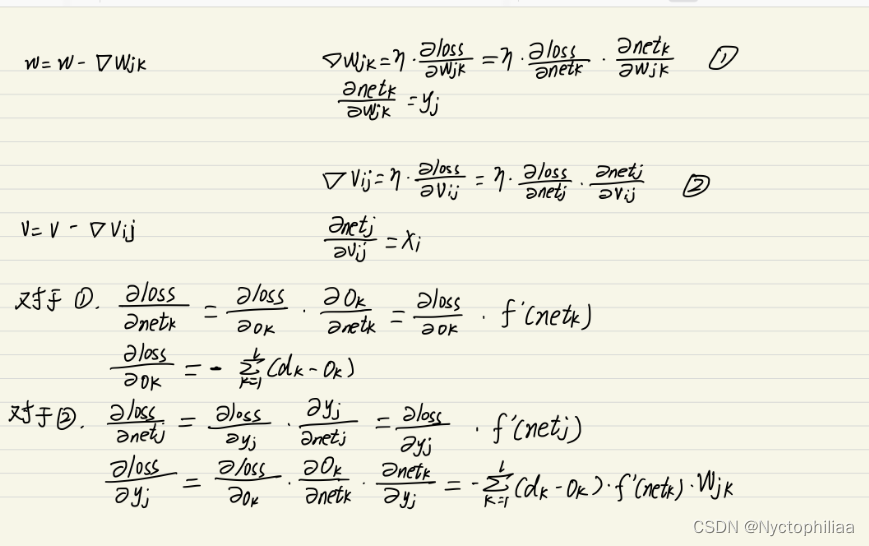 w = w - ∇Wjk
∇Wjk = η · ∂loss/∂Wjk = η · ∂loss/∂netk · ∂netk/∂Wjk ①
∂netk/∂Wjk = yj
∇Vij = η · ∂loss/∂Vij = η · ∂loss/∂netj · ∂netj/∂Vij ②
V = V - ∇Vij
∂netj/∂Vij = Xi
对于①. ∂loss/∂netk = ∂loss/∂OK · ∂OK/∂netk = ∂loss/∂OK · f'(netk)
∂loss/∂OK = - ∑_{K=1}^{L} (dK - OK)
对于②. ∂loss/∂netj = ∂loss/∂yj · ∂yj/∂netj = ∂loss/∂yj · f'(netj)
∂loss/∂yj = ∂loss/∂OK · ∂OK/∂netk · ∂netk/∂yj = - ∑_{K=1}^{L} (dK - OK) · f'(netk) · Wjk
CSDN @Nyctophiliaa